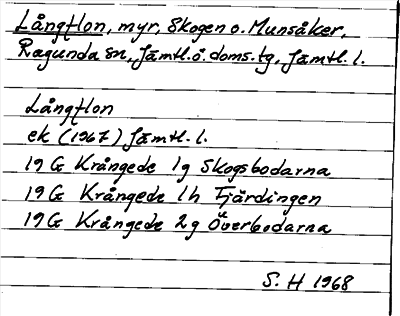 Långflon, myr, Skogen o. Munsåker,
Ragunda sn, Jämtl. ö. doms. tg, Jämtl. l.
Långflon
ek (1967) Jämtl. l.
19 G Krångede 1g Skogsbodarna
19 G Krångede 1h Fjärdingen
19 G Krångede 2g Överbodarna
S. H 1968